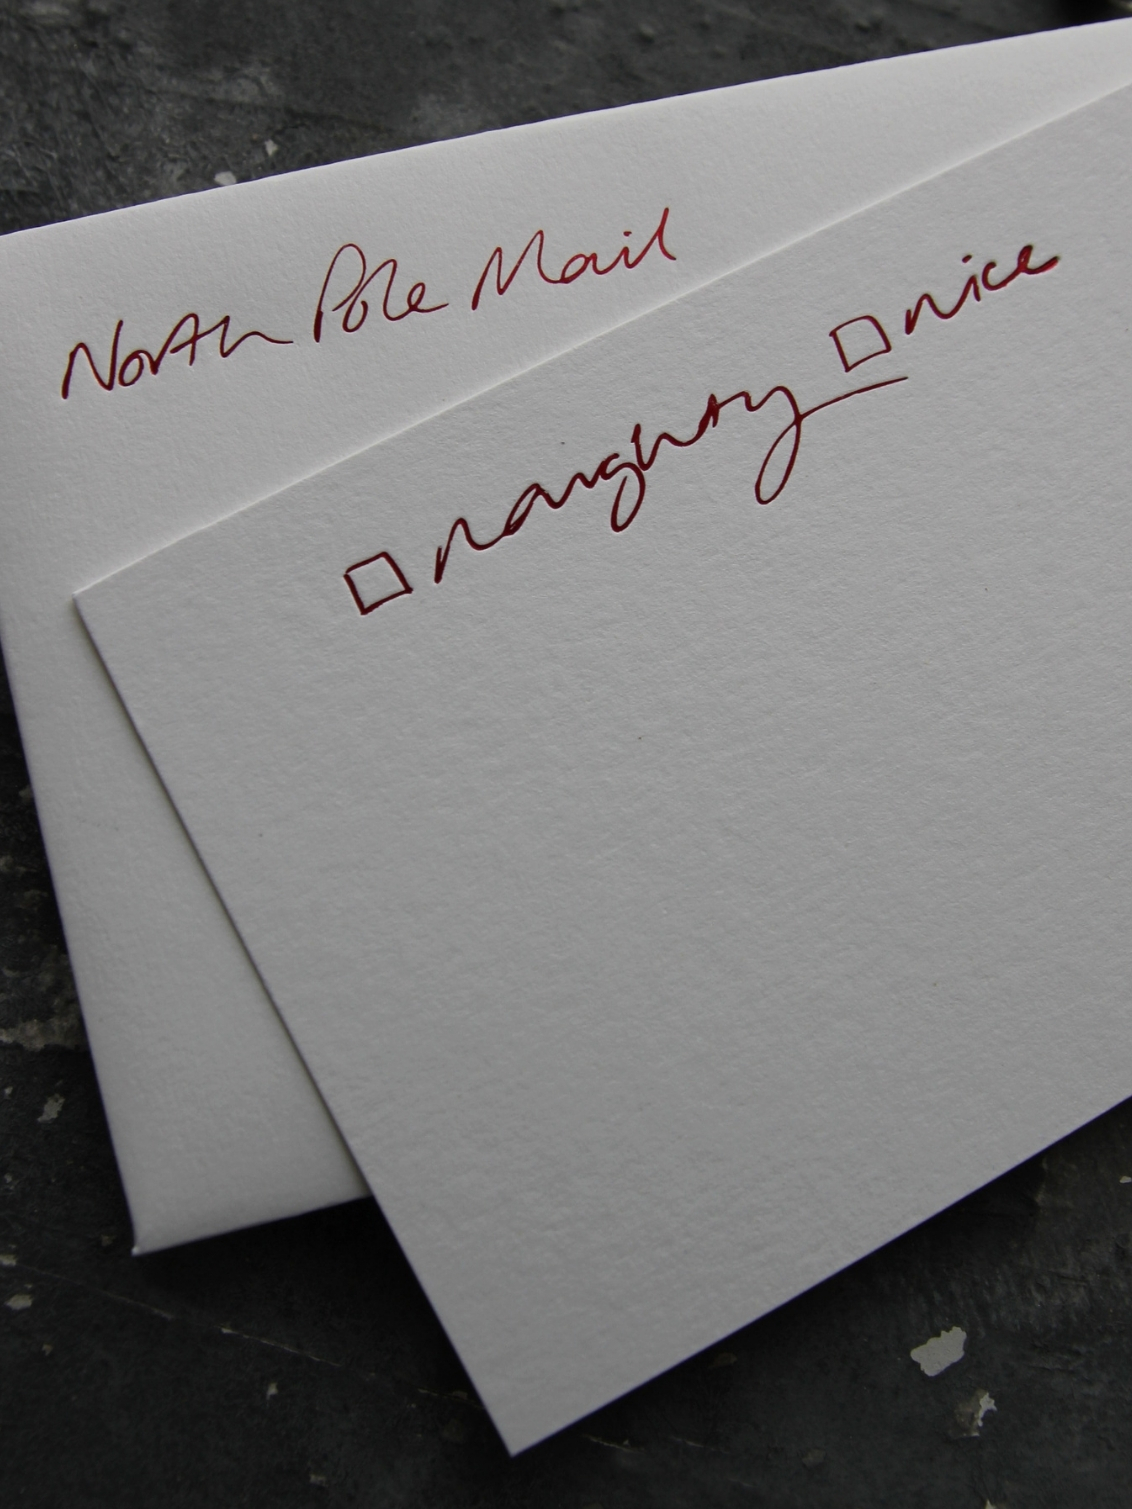 North Pole Mail
☐ naughty ☐ nice